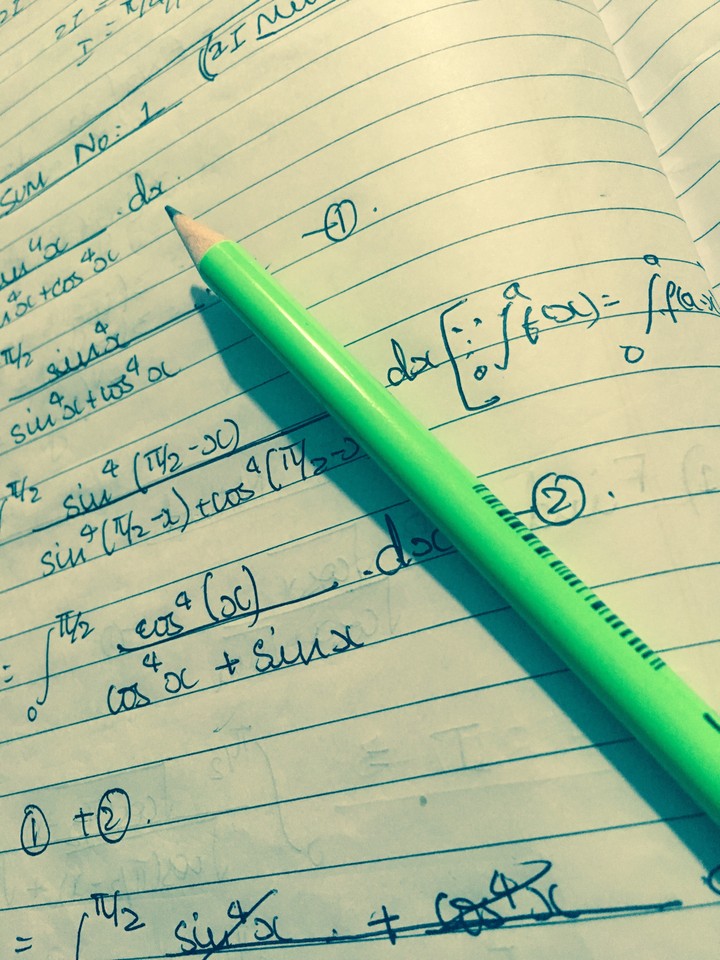 2I =
I = π/4
(2I Me
SUM No: 1
sin⁴x . dx .
sin⁴x + cos⁴x
— ① .
π/2 sin⁴x
sin⁴x + cos⁴x
dx [ ∵ ₀∫ᵃ f(x) = ₀∫ᵃ f(a-x)
π/2 sin⁴ (π/2 - x)
sin⁴ (π/2 - x) + cos⁴ (π/2 - x
— ② .
= ₀∫ π/2 cos⁴ (x) . dx
cos⁴x + sinx
① + ② .
= ∫ π/2 sin⁴x + cos⁴x